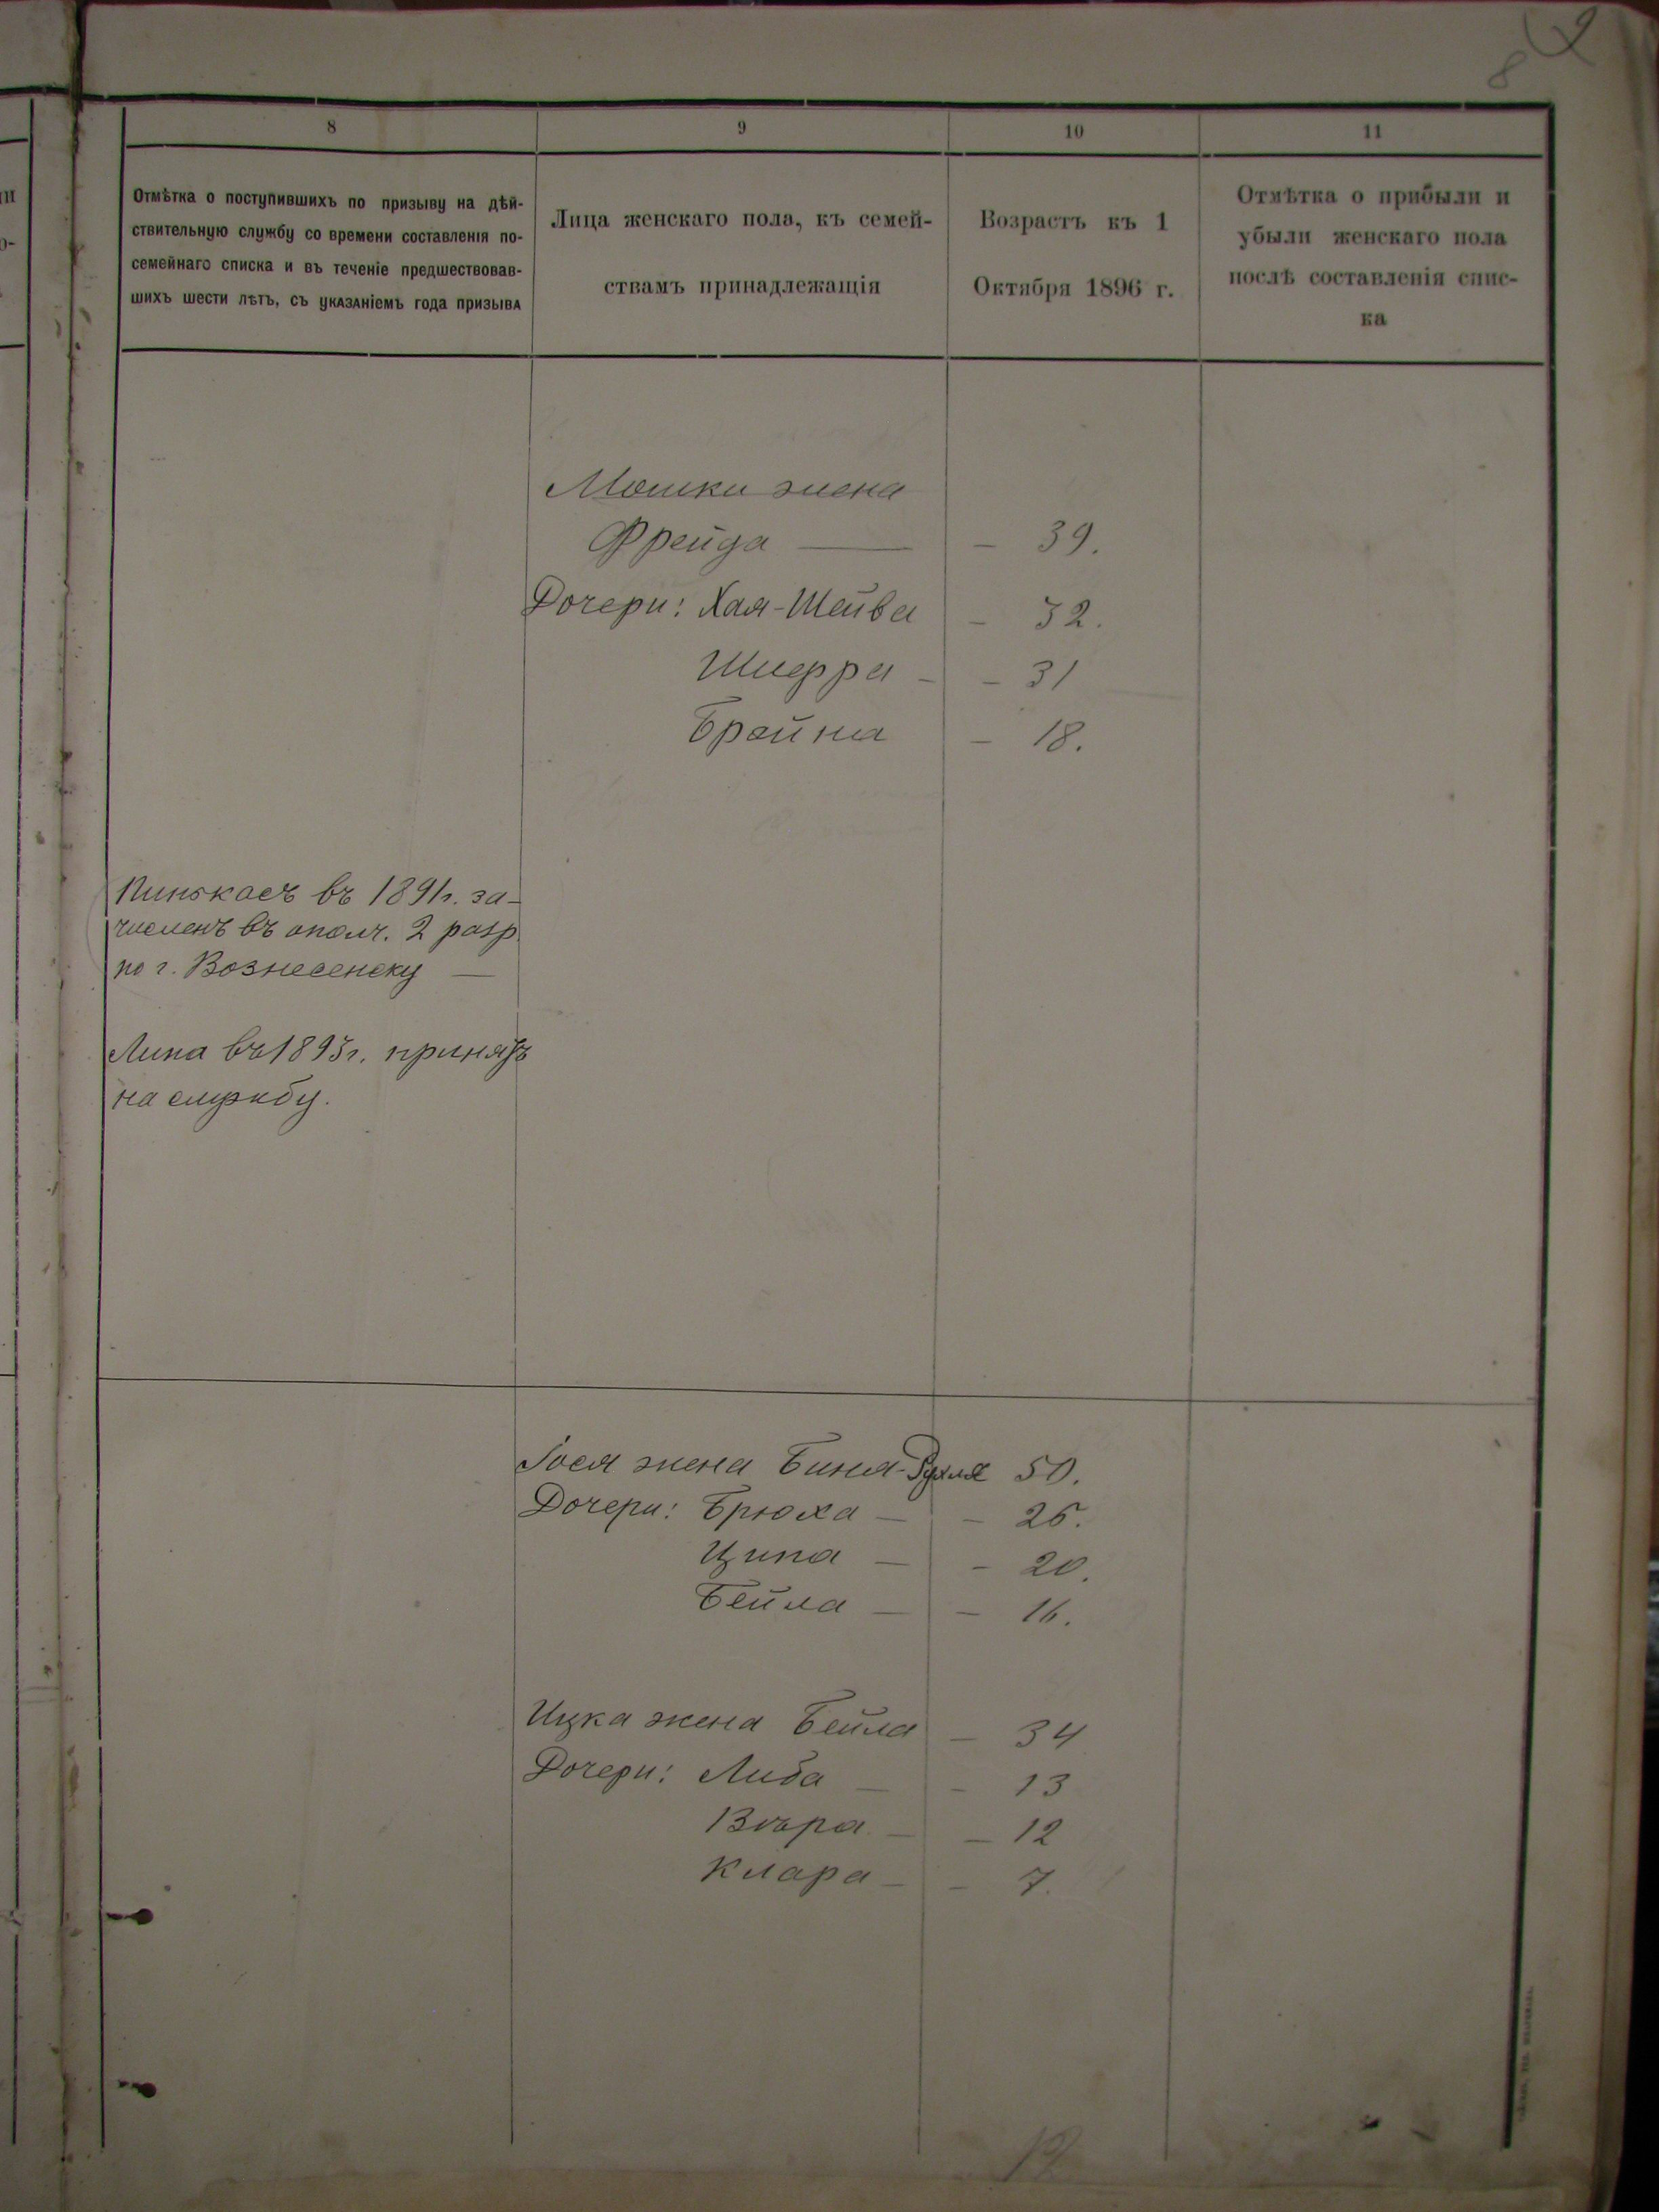 9
8
8
9
10
11
Отмѣтка о поступившихъ по призыву на дѣй-
ствительную службу со времени составленія по-
семейнаго списка и въ теченіе предшествовав-
шихъ шести лѣтъ, съ указаніемъ года призыва
Лица женскаго пола, къ семей-
ствамъ принадлежащія
Возрастъ къ 1
Октября 1896 г.
Отмѣтка о прибыли и
убыли женскаго пола
послѣ составленія спис-
ка
Мошки жена
Фрейда — - 39.
Дочери: Хая-Шейва - 32.
Шифра - - 31
Брайна - 18.
Пинькасъ въ 1891г. за-
численъ въ ополч. 2 разр.
по г. Вознесенску —
Липа въ 1893г. принятъ
на службу.
Іося жена Биня-Рухля 50.
Дочери: Брюха - - 26.
Ципа - - 20.
Бейла - - 16.
Ицка жена Бейла - 34
Дочери: Либа - - 13
Вѣра - - 12
Клара - - 7.